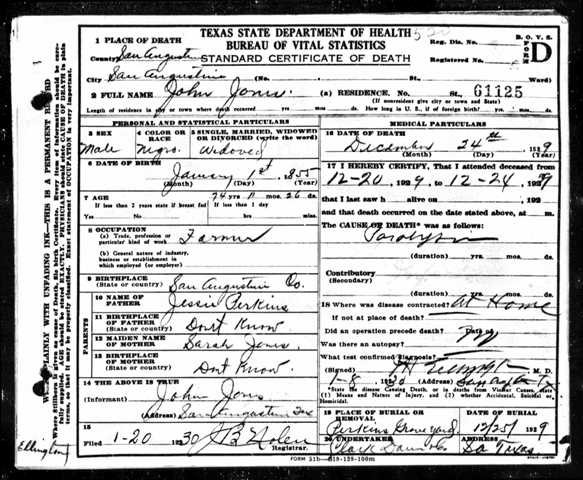 TEXAS STATE DEPARTMENT OF HEALTH
BUREAU OF VITAL STATISTICS
STANDARD CERTIFICATE OF DEATH
B. O. V. S.
FORM D
Reg. Dis. No.
Registered No.
1 PLACE OF DEATH
County San Augustine
City San Augustine (No. St., Ward)
2 FULL NAME John Jones. (a) RESIDENCE. No. St., 61125
(If nonresident give city or town and State)
Length of residence in city or town where death occurred yrs. mos. ds. How long in U. S., if of foreign birth? yrs. mos. ds.
PERSONAL AND STATISTICAL PARTICULARS
3 SEX
Male
4 COLOR OR RACE
Negro.
5 SINGLE, MARRIED, WIDOWED OR DIVORCED (write the word)
Widoved
6 DATE OF BIRTH
January 1st 1855
(Month) (Day) (Year)
7 AGE
74 yrs 11 mos. 26 ds.
If less than 2 years state if breast fed If less than 1 day
Yes No hrs. min.
8 OCCUPATION
(a) Trade, profession or particular kind of work Farmer
(b) General nature of industry, business or establishment in which employed (or employer)
9 BIRTHPLACE
(State or country) San Augustine Co.
PARENTS
10 NAME OF FATHER Jessie Perkins
11 BIRTHPLACE OF FATHER
(State or country) Dont Know
12 MAIDEN NAME OF MOTHER Sarah Jones.
13 BIRTHPLACE OF MOTHER
(State or country) Dont Know.
14 THE ABOVE IS TRUE
Informant John Jones
(Address) San Augustine Tex
15
1-20 1930 J B Nolen
Registrar.
MEDICAL PARTICULARS
16 DATE OF DEATH
December 24th 1929
(Month) (Day) (Year)
17 I HEREBY CERTIFY, That I attended deceased from
12-20, 1929 to 12-24, 1929
that I last saw h alive on 192
and that death occurred on the date stated above, at m.
The CAUSE OF DEATH* was as follows:
(duration) yrs. mos. ds.
Contributory
(Secondary)
(duration) yrs. mos. ds.
18 Where was disease contracted? at Home
if not at place of death?
Did an operation precede death?
Was there an autopsy?
What test confirmed diagnosis?
(Signed) M. D.
1-8 1930 (Address)
*State the disease Causing Death, or in deaths from Violent Causes, state (1) Means and Nature of Injury, and (2) whether Accidental, Suicidal or Homicidal.
19 PLACE OF BURIAL OR REMOVAL
Perkins Graveyard
DATE OF BURIAL
12/25/1929
20 UNDERTAKER
ADDRESS
So Texas
FORM 51b
Ellington